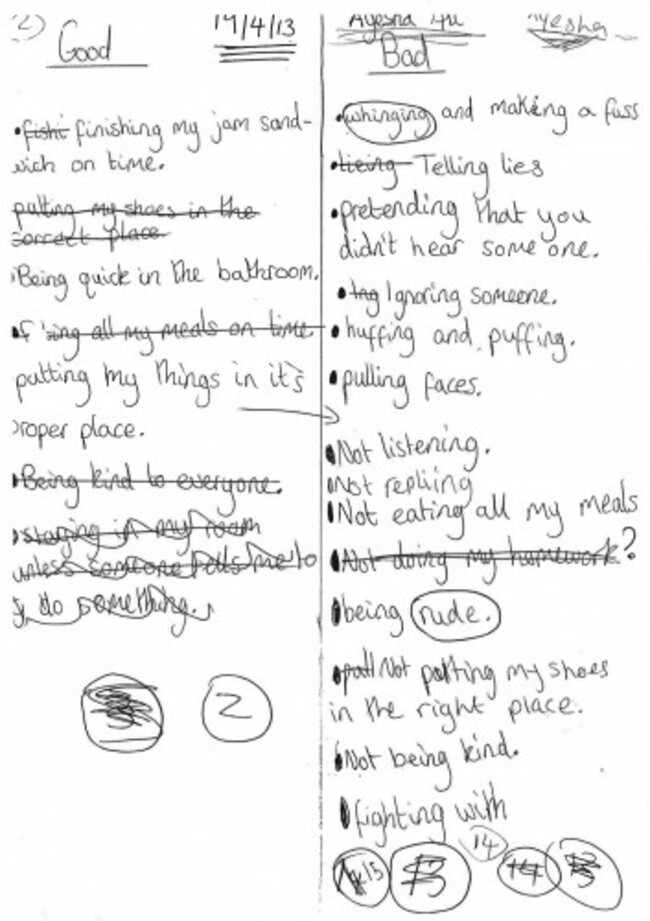 2)
Good
19/4/13
• fishi finishing my jam sand-
wich on time.
putting my shoes in the
correct place.
Being quick in the bathroom.
all my meals on time
putting my things in it's
roper place.
Being kind to everyone.
staying in my room
unless someone tells me to
do something.
2
Ayesha
Ayesha
Bad
• whinging and making a fuss
• lieing Telling lies
• pretending that you
didn't hear some one.
• Ing Ignoring someone.
• huffing and puffing.
• pulling faces.
Not listening.
Not repliing
Not eating all my meals
Not doing my homework?
being rude.
Not putting my shoes
in the right place.
Not being kind.
fighting with
14
15
13
14